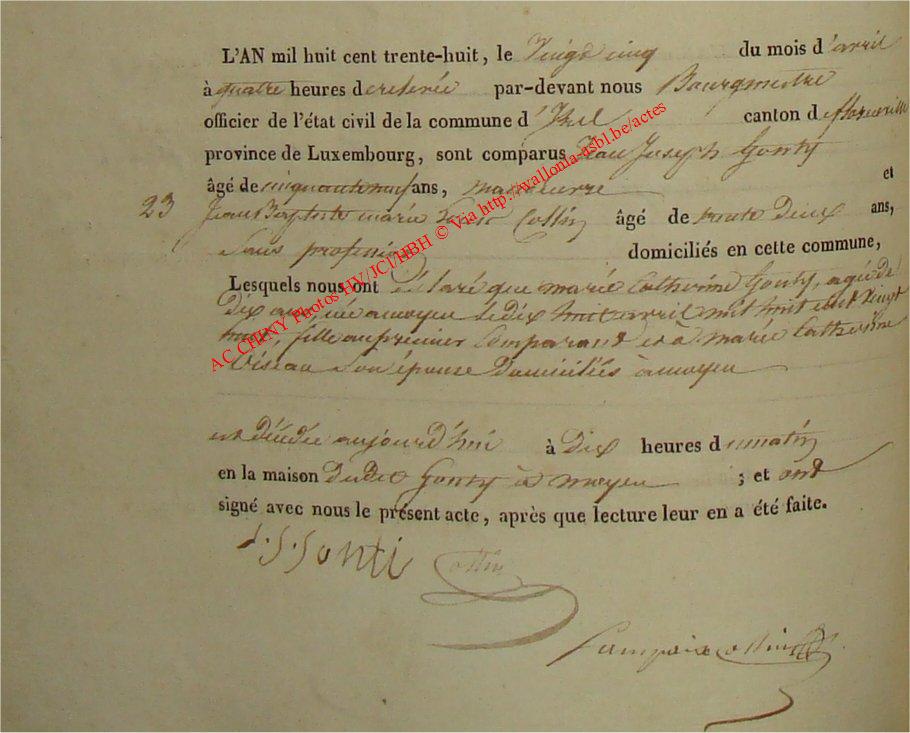 L'AN mil huit cent trente-huit, le Vingt cinq du mois d'avril
à quatre heures de relevée par-devant nous Bourgmestre
officier de l'état civil de la commune d'Izel canton de florenville
province de Luxembourg, sont comparus Jean Joseph Gonty
âgé de cinquante neuf ans, manoeuvre et
23 Jean Baptiste marie Collin âgé de trente Deux ans,
Sans profession domiciliés en cette commune,
Lesquels nous ont déclaré que marie Catherine Gonty, agée de
Dix ans, née a moyen le dix huit avril mil huit cent Vingt
huit, fille au premier Comparant et à marie Catherine
Son épouse Domiciliés à moyen
est décédée aujourd'hui à Dix heures du matin
en la maison Dudit Gonty à moyen ; et ont
signé avec nous le présent acte, après que lecture leur en a été faite.
J. J. Gonti Collin
AC CHINY Photos HV/JCl/HBH © Via http://wallonia-asbl.be/actes